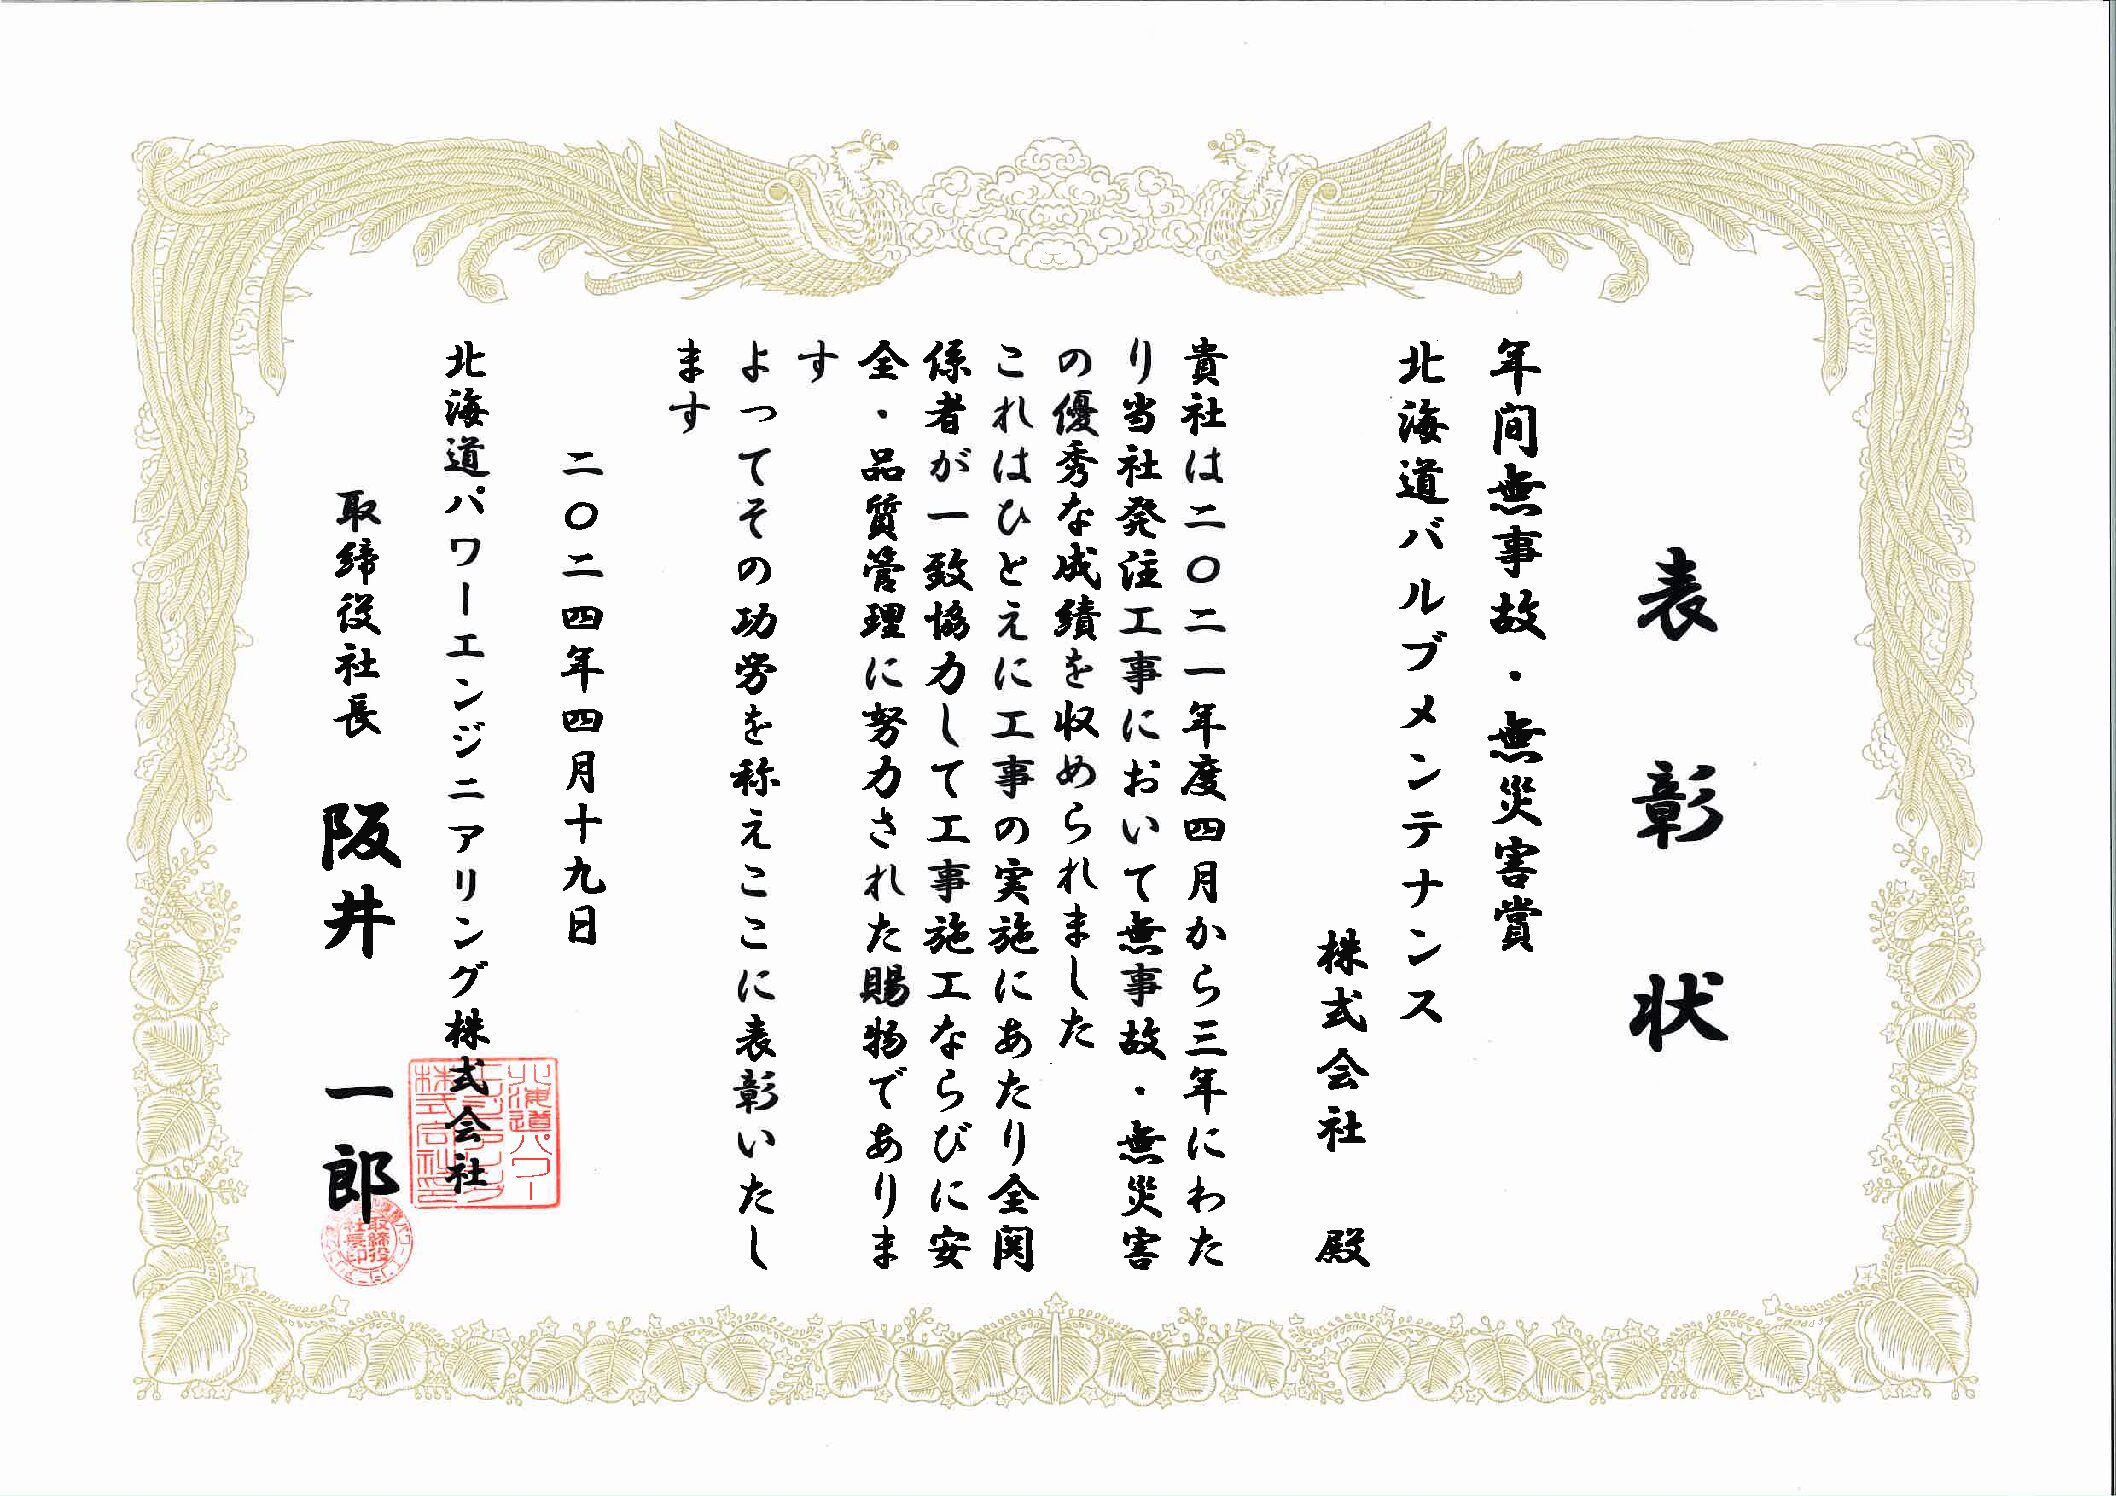 表彰状
年间無事故・無災害賞
北海道バルブメンテナンス
株式会社 殿
貴社は二〇二一年度四月から三年にわた
り当社発注工事において無事故・無災害
の優秀な成績を収められました
これはひとえに工事の実施にあたり全関
係者が一致協力して工事施工ならびに安
全・品質管理に努力された賜物でありま
す
よってその功労を称えここに表彰いたし
ます
二〇二四年四月十九日
北海道パワーエンジニアリング株式会社
取締役社長 阪井 一郎
取締役
社長印